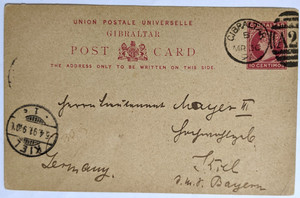 UNION POSTALE UNIVERSELLE
GIBRALTAR
POST CARD
THE ADDRESS ONLY TO BE WRITTEN ON THIS SIDE.
GIBRALTAR
B
MR
A26
10 CENTIMOS
Herrn Lieutenant Mayer II
Kiel
S.M.S. Bayern
Germany.
KIEL
5.4.97.9